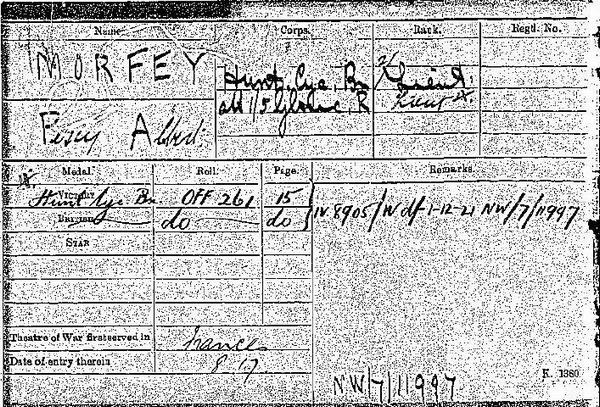 Name. Corps. Rank. Regtl. No.
MORFEY Hunts. Cyc. Bn 2/Lieut.
att 1/5 Glos R Lieut
Percy Albert
Medal. Roll. Page. Remarks.
VICTORY Hunts Cyc Bn OFF 261 15 IV 8905/W df 1-12-21 NW/7/11997
BRITISH do do
STAR
Theatre of War first served in France
Date of entry therein 8.17
NW/7/11997
K. 1380